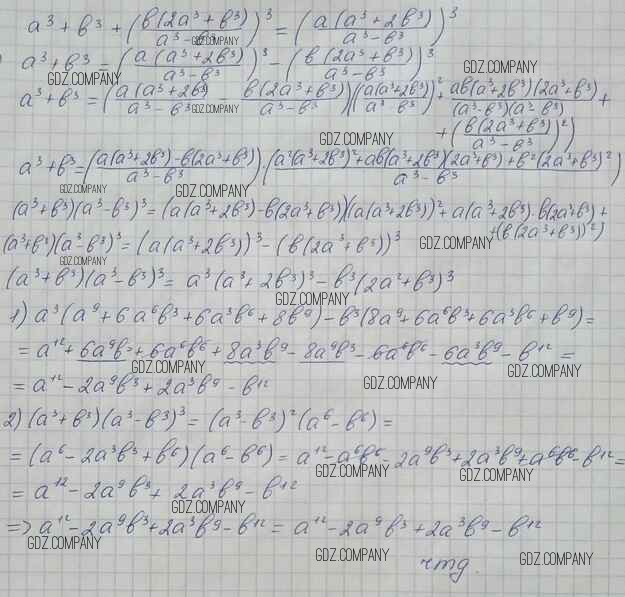 a³ + b³ + (b(2a³ + b³)/(a³ - b³))³ = (a(a³ + 2b³)/(a³ - b³))³
GDZ.COMPANY
a³ + b³ = (a(a³ + 2b³)/(a³ - b³))³ - (b(2a³ + b³)/(a³ - b³))³
GDZ.COMPANY GDZ.COMPANY
a³ + b³ = (a(a³ + 2b³)/(a³ - b³) - b(2a³ + b³)/(a³ - b³))((a(a³ + 2b³)/(a³ - b³))² + ab(a³ + 2b³)(2a³ + b³)/((a³ - b³)(a³ - b³)) +
GDZ.COMPANY
+ (b(2a³ + b³)/(a³ - b³))²)
GDZ.COMPANY
a³ + b³ = (a(a³ + 2b³) - b(2a³ + b³)/(a³ - b³)) · (a²(a³ + 2b³)² + ab(a³ + 2b³)(2a³ + b³) + b²(2a³ + b³)²/(a³ - b³))
GDZ.COMPANY GDZ.COMPANY
(a³ + b³)(a³ - b³)³ = (a(a³ + 2b³) - b(2a³ + b³))((a(a³ + 2b³))² + a(a³ + 2b³) · b(2a³ + b³) +
+ (b(2a³ + b³))²)
(a³ + b³)(a³ - b³)³ = (a(a³ + 2b³))³ - (b(2a³ + b³))³ GDZ.COMPANY
GDZ.COMPANY
(a³ + b³)(a³ - b³)³ = a³(a³ + 2b³)³ - b³(2a² + b³)³
GDZ.COMPANY
1) a³(a⁹ + 6a⁶b³ + 6a³b⁶ + 8b⁹) - b³(8a⁹ + 6a⁶b³ + 6a³b⁶ + b⁹) =
= a¹² + 6a⁹b³ + 6a⁶b⁶ + 8a³b⁹ - 8a⁹b³ - 6a⁶b⁶ - 6a³b⁹ - b¹² =
GDZ.COMPANY GDZ.COMPANY
= a¹² - 2a⁹b³ + 2a³b⁹ - b¹² GDZ.COMPANY
2) (a³ + b³)(a³ - b³)³ = (a³ - b³)²(a⁶ - b⁶) =
= (a⁶ - 2a³b³ + b⁶)(a⁶ - b⁶) = a¹² - a⁶b⁶ - 2a⁹b³ + 2a³b⁹ + a⁶b⁶ - b¹² =
GDZ.COMPANY GDZ.COMPANY
= a¹² - 2a⁹b³ + 2a³b⁹ - b¹²
GDZ.COMPANY
=> a¹² - 2a⁹b³ + 2a³b⁹ - b¹² = a¹² - 2a⁹b³ + 2a³b⁹ - b¹²
GDZ.COMPANY GDZ.COMPANY GDZ.COMPANY
чтд.